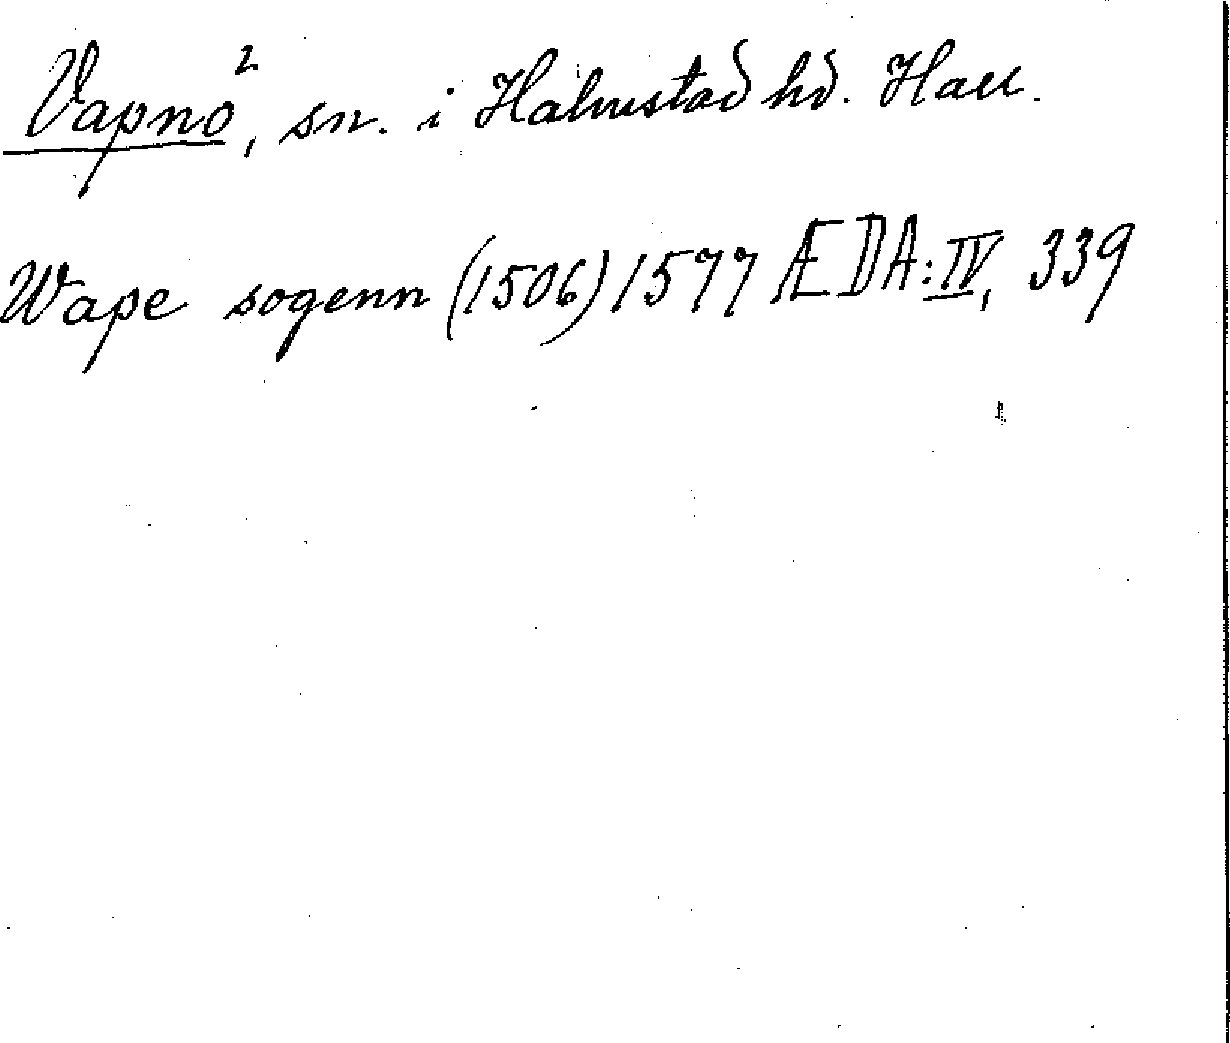 Vapnö, sn. i Halmstad hd. Hall.
Wape sogenn (1506) 1577 ÆDA: IV, 339